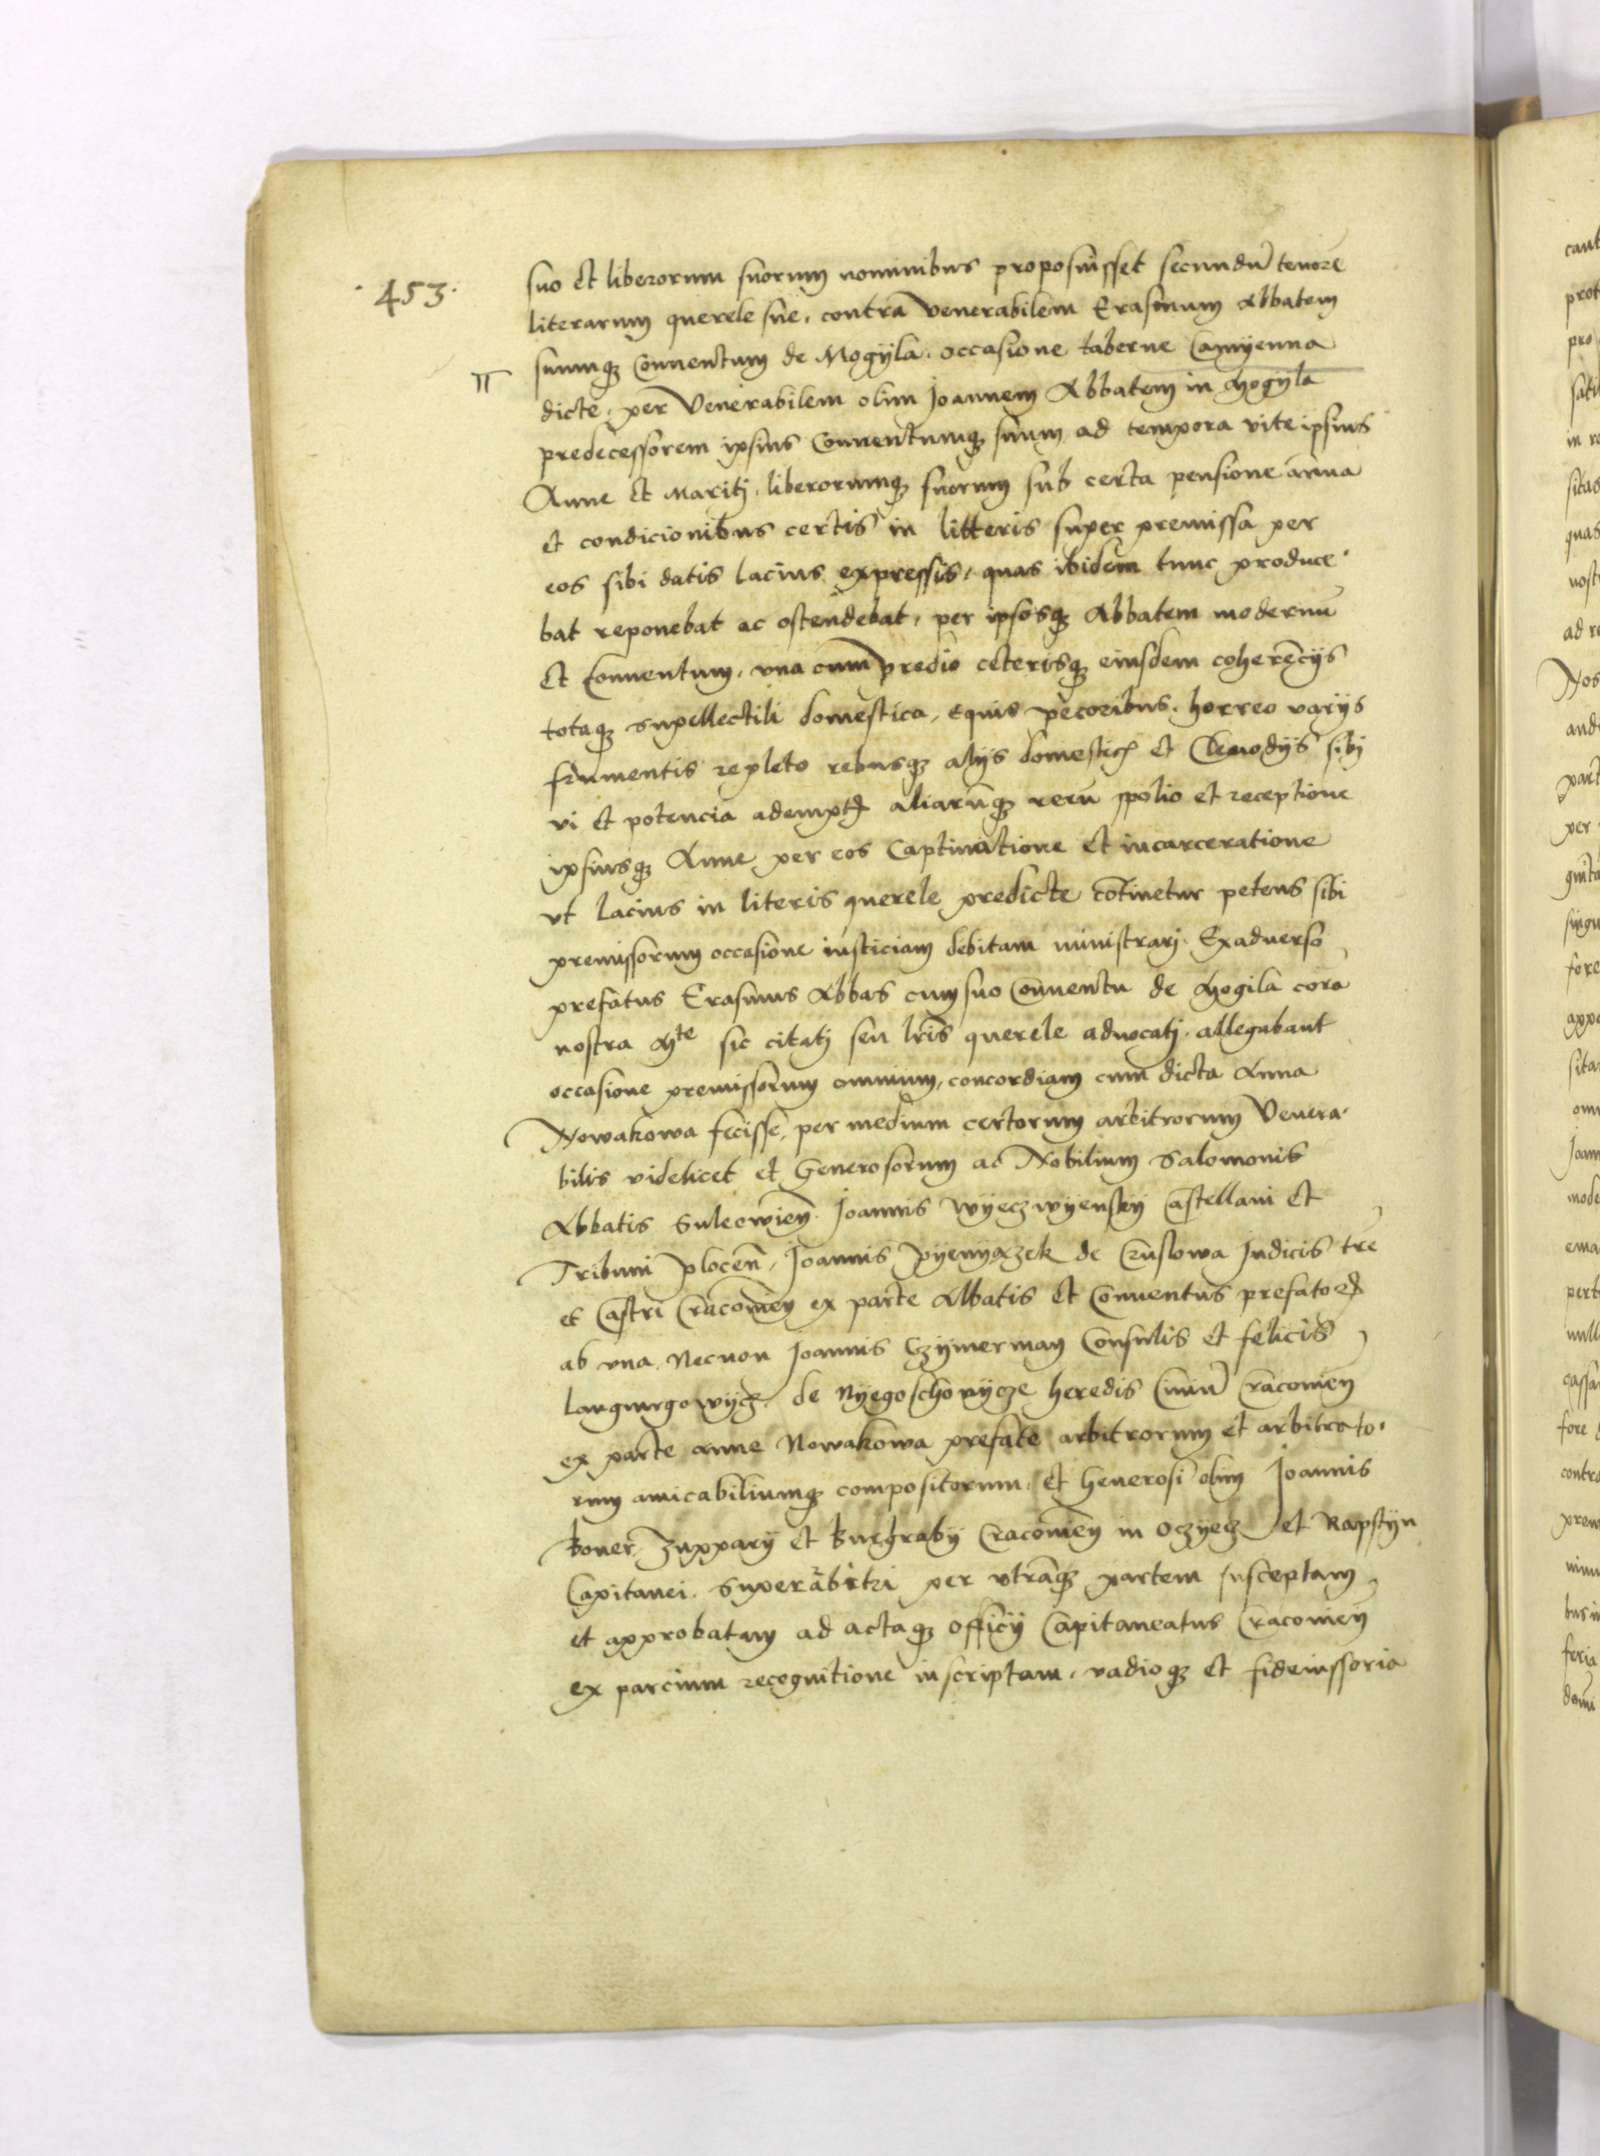 ·453·
suo et liberorum suorum nominibus proposuisset secundũ tenorẽ
literarum querele sue, contra Venerabilem Erasmum Abbatem
suumqꝫ Conuentum de Mogyla. occasione taberne Camyenna
dicte, per Venerabilem olim Joannem Abbatem in Mogyla
predecessorem ipsius Conuentumqꝫ suum ad tempora vite ipsius
Anne et Maritj, liberorumqꝫ suorum sub certa pensione annua
et condicionibus certis in litteris super premissa per
eos sibi datis lacius expressis, quas ibidem tunc produce-
bat reponebat ac ostendebat, per ipsosqꝫ Abbatem modernũ
et Conuentum, vna cum predio ceterisqꝫ eiusdem coherẽcijs
totaqꝫ supellectili domestica, Equis pecoribus. horreo varijs
frumentis repleto rebusqꝫ alijs domesticꝭ et Clenodijs sibi
vi et potencia ademptꝭ aliarũqꝫ rerũ spolio et receptione
ipsiusqꝫ Anne per eos Captiuatione et incarceratione
vt lacius in literis querele predicte cõtinetur petens sibi
premissorum occasione iusticiam debitam ministrarj. Exaduerso
prefatus Erasmus Abbas cum suo Conuentu de Mogila corã
nostra Mte sic citatj seu lr̃is querele aduocatj. allegabant
occasione premissorum omnium, concordiam cum dicta Anna
Nowakowa fecisse, per medium certorum arbitrorum Venera-
bilis videlicet et Generosorum ac Nobilium Salomonis
Abbatis Suleowieñ. Joannis Wyeczwyensky Castellani et
Tribuni Ploceñ, Joannis Pyenyązek de Cruslowa Judicis tr̃e
et Castri Cracouieñ ex parte Abbatis et Conuentus prefatoꝝ
ab vna, Necnon Joannis Czymerman Consulis et felicis
Langurgowycz. de Nyegoschowycze heredis Ciuiũ Cracouieñ
ex parte Anne Nowakowa prefate arbitrorum et arbitrato-
rum amicabiliumqꝫ compositorum, et Generosi olim Joannis
Boner, Zupparij et Burgrabij Cracouieñ in Oczyecz et Rapstyn
Capitanei. Superarbitri per vtrãqꝫ partem susceptam
et approbatam ad actaqꝫ officij Capitaneatus Cracouieñ
ex parcium recognitione inscriptam, vadioqꝫ et fideiussoria